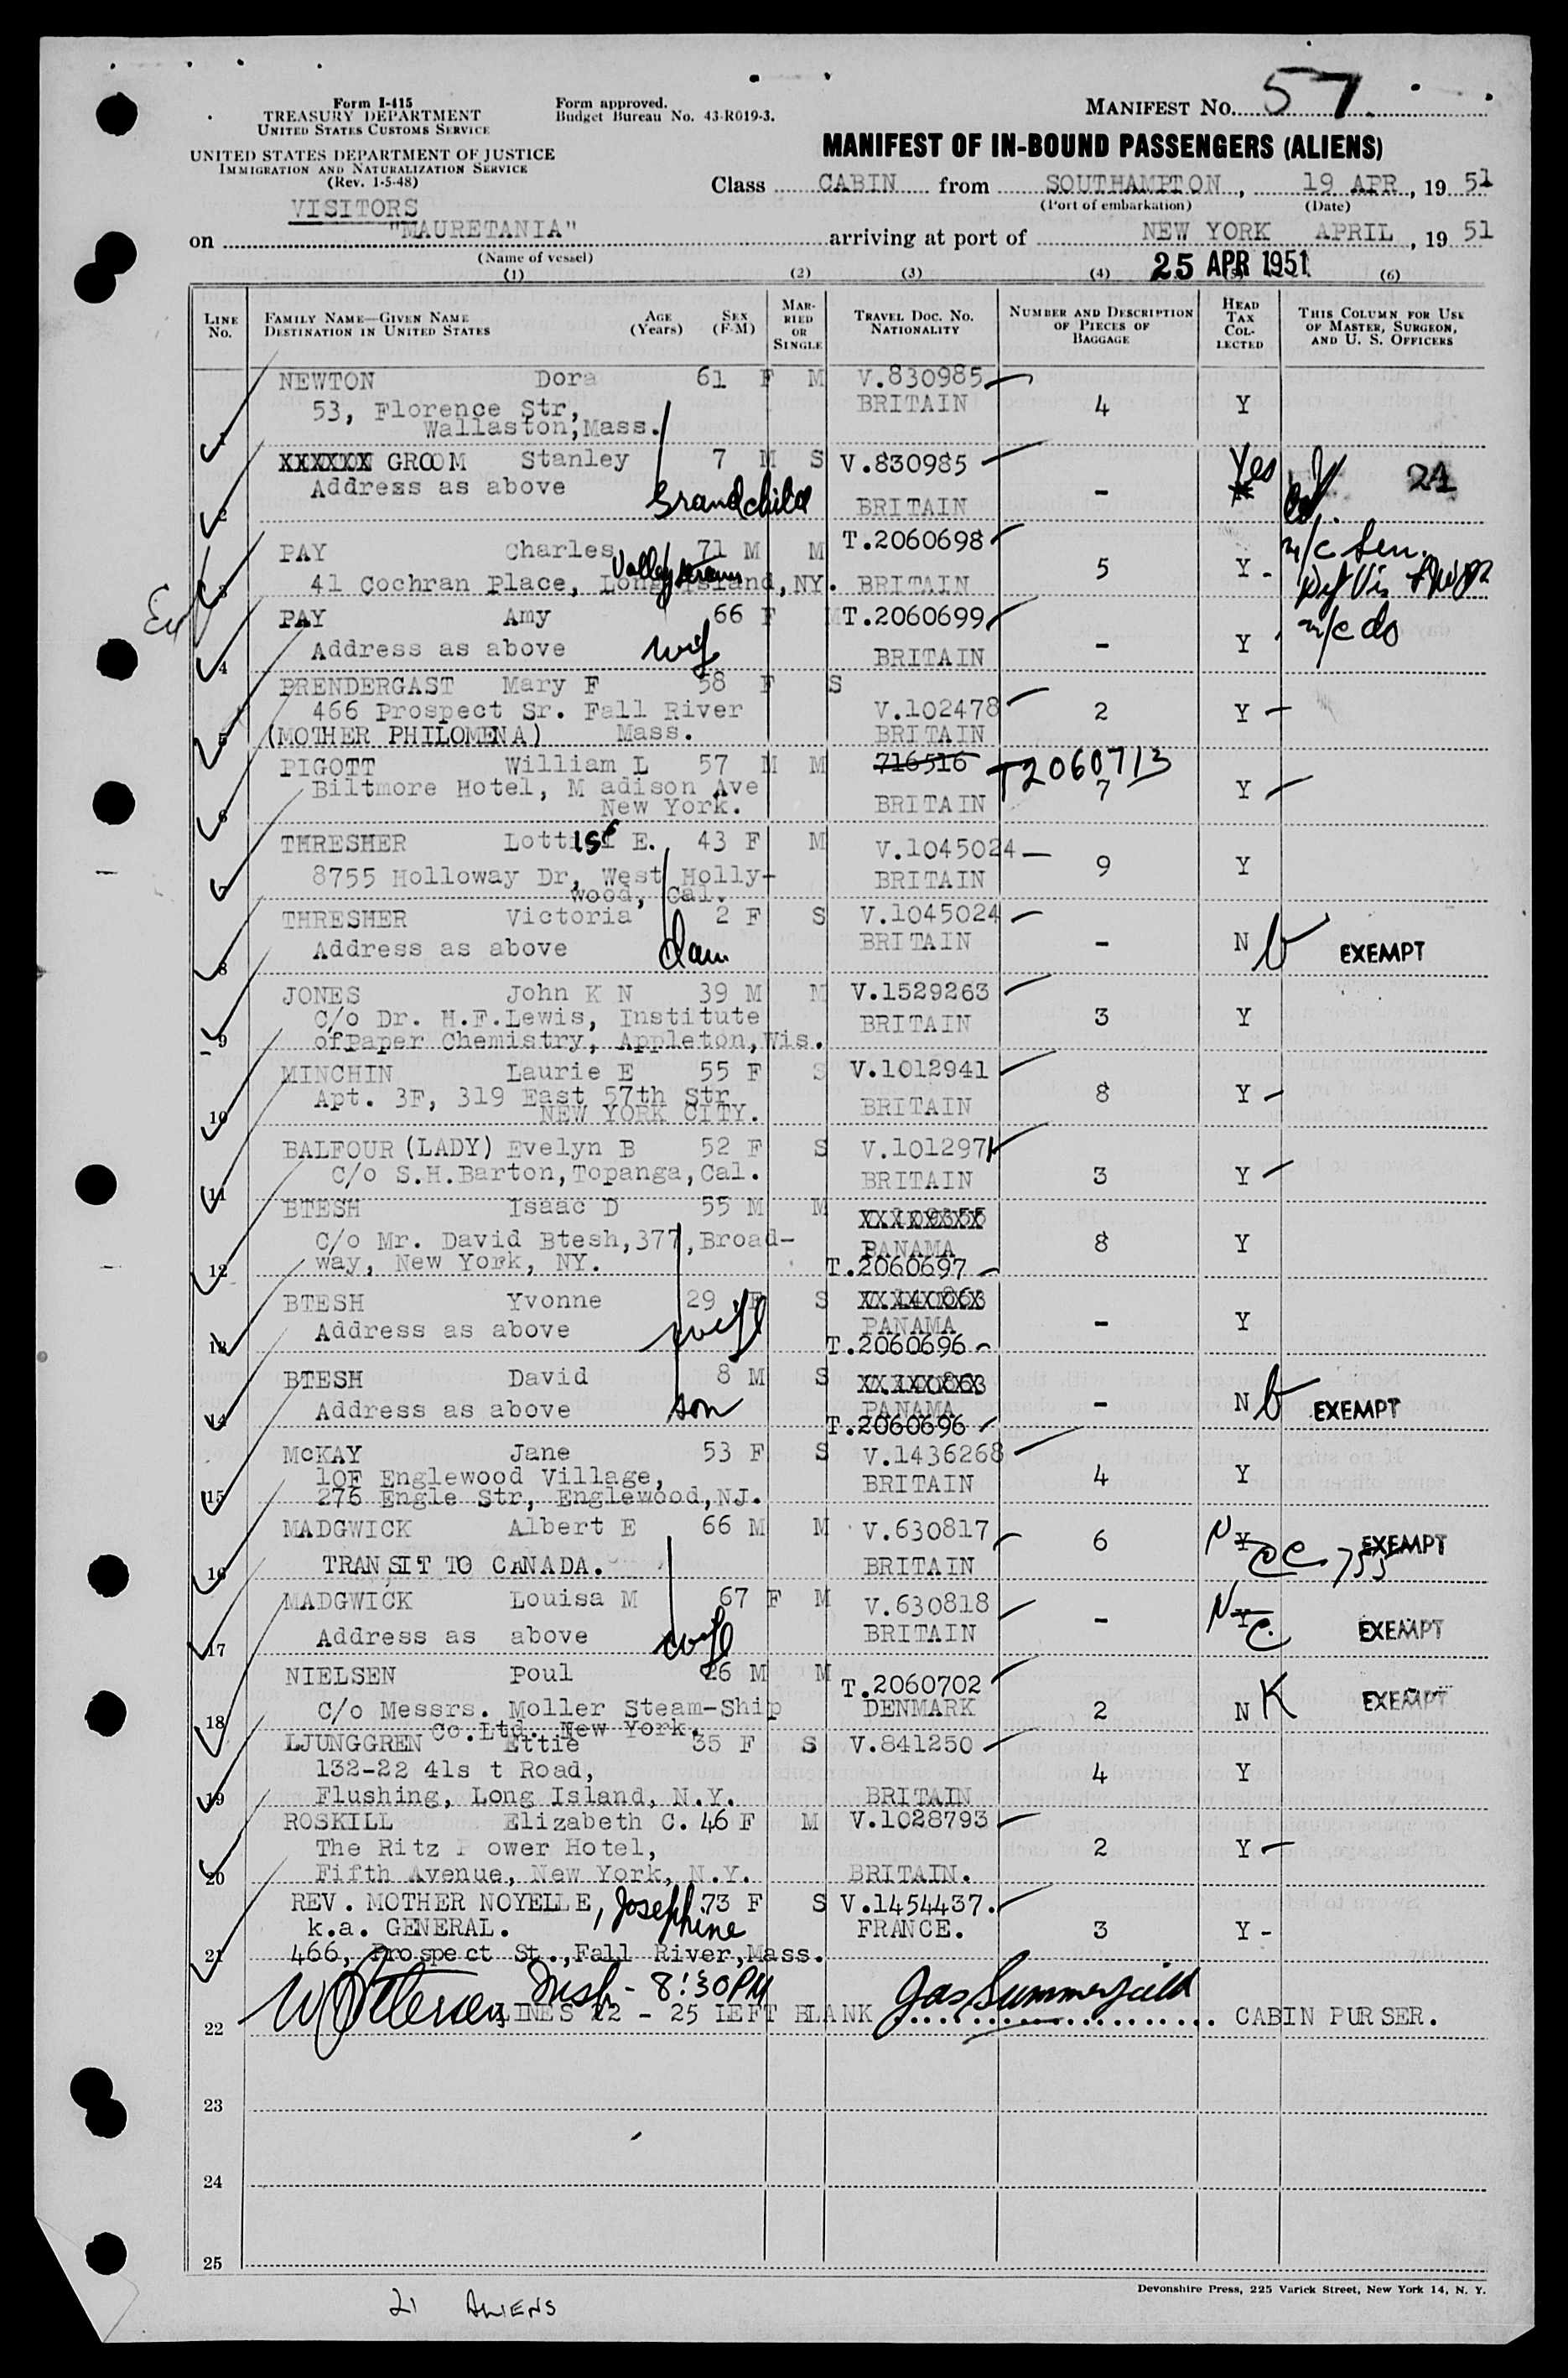 Form I-415
TREASURY DEPARTMENT
UNITED STATES CUSTOMS SERVICE
UNITED STATES DEPARTMENT OF JUSTICE
IMMIGRATION AND NATURALIZATION SERVICE
(Rev. 1-5-48)
Form approved.
Budget Bureau No. 43-R019-3.
MANIFEST No. 57
MANIFEST OF IN-BOUND PASSENGERS (ALIENS)
Class CABIN from SOUTHAMPTON, 19 APR, 1951
(Port of embarkation) (Date)
VISITORS
on "MAURETANIA" arriving at port of NEW YORK APRIL, 1951
(Name of vessel)
25 APR 1951
(1) (2) (3) (4) (5) (6)
LINE No. FAMILY NAME—GIVEN NAME DESTINATION IN UNITED STATES AGE (Years) SEX (F-M) MARRIED OR SINGLE TRAVEL DOC. No. NATIONALITY NUMBER AND DESCRIPTION OF PIECES OF BAGGAGE HEAD TAX COLLECTED THIS COLUMN FOR USE OF MASTER, SURGEON, AND U. S. OFFICERS
1 NEWTON Dora 61 F M V.830985
53, Florence Str, BRITAIN 4 Y
Wallaston, Mass.
2 XXXXXXX GROOM Stanley 7 M S V.830985 Yes 21
Address as above Grandchild BRITAIN -
3 PAY Charles 71 M M T.2060698
41 Cochran Place, Valley Stream Long Island, NY. BRITAIN 5 Y - n/c Sen.
4 PAY Amy 66 F M T.2060699 n/c do
Address as above wif BRITAIN - Y
5 PRENDERGAST Mary F 58 F S
466 Prospect Sr. Fall River V.102478 2 Y
(MOTHER PHILOMENA) Mass. BRITAIN
6 PIGOTT William L 57 M M 716516 T2060713
Biltmore Hotel, M adison Ave 7 Y
New York. BRITAIN
7 THRESHER Lottise E. 43 F M V.1045024
8755 Holloway Dr, West Holly- BRITAIN 9 Y
wood, Cal.
8 THRESHER Victoria 2 F S V.1045024
Address as above dau BRITAIN - N b EXEMPT
9 JONES John K N 39 M M V.1529263
C/o Dr. H.F.Lewis, Institute BRITAIN 3 Y
ofPaper Chemistry, Appleton, Wis.
10 MINCHIN Laurie E 55 F S V.1012941
Apt. 3F, 319 East 57th Str BRITAIN 8 Y
NEW YORK CITY.
11 BALFOUR (LADY) Evelyn B 52 F S V.1012971
C/o S.H.Barton, Topanga, Cal. BRITAIN 3 Y
12 BTESH Isaac D 55 M M XXXXXXXX
C/o Mr. David Btesh, 377, Broad- PANAMA 8 Y
way, New York, NY. T.2060697
13 BTESH Yvonne 29 F S XXXXXXXX
Address as above wife PANAMA - Y
T.2060696
14 BTESH David 8 M S XXXXXXXX
Address as above son PANAMA - N b EXEMPT
T.2060696
15 McKAY Jane 53 F S V.1436268
10F Englewood Village, BRITAIN 4 Y
276 Engle Str, Englewood, NJ.
16 MADGWICK Albert E 66 M M V.630817 6 N Y EXEMPT
TRANSIT TO CANADA. BRITAIN
17 MADGWICK Louisa M 67 F M V.630818 N Y C.
Address as above wife BRITAIN - EXEMPT
18 NIELSEN Poul 26 M M T.2060702
C/o Messrs. Moller Steam-Ship DENMARK 2 N K EXEMPT
Co.Ltd. New York.
19 LJUNGGREN Ettie 35 F S V.841250
132-22 41s t Road, 4 Y
Flushing, Long Island, N.Y. BRITAIN
20 ROSKILL Elizabeth C. 46 F M V.1028793
The Ritz P ower Hotel, 2 Y
Fifth Avenue, New York, N.Y. BRITAIN.
21 REV. MOTHER NOYELLE, Josephine 73 F S V.1454437.
k.a. GENERAL. FRANCE. 3 Y -
466, Prospect St., Fall River, Mass.
Insp - 8:30PM Jas Summerfield
22 LINES 22 - 25 LEFT BLANK .................... CABIN PURSER.
23
24
25
Devonshire Press, 225 Varick Street, New York 14, N. Y.
21 ALIENS